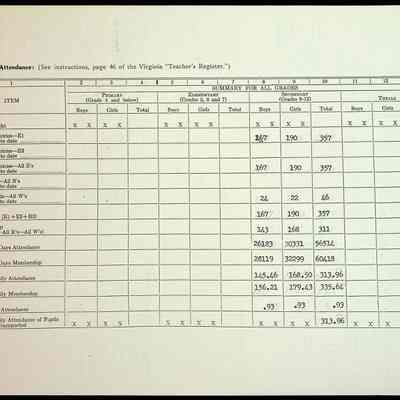 Attendance: (See instructions, page 46 of the Virginia "Teacher's Register.")
1 2 3 4 5 6 7 8 9 10 11 12
SUMMARY FOR ALL GRADES
ITEM PRIMARY (Grades 4 and below) ELEMENTARY (Grades 5, 6 and 7) SECONDARY (Grades 8-12) TOTALS
Boys Girls Total Boys Girls Total Boys Girls Total Boys Girls
X X X X X X X X X X X X X X X X
E1 to date 167 190 357
E2 to date
All R's to date 167 190 357
All R's to date
All W's to date 24 22 46
(E1 + E2 + R2) 167 190 357
All R's—All W's) 143 168 311
Days Attendance 26183 30331 56514
Days Membership 28119 32299 60418
Attendance 145.46 168.50 313.96
Membership 156.21 179.43 335.64
Attendance .93 .93 .93
Attendance of Pupils Transported X X X X X X X X X X X X 313.96 X X X